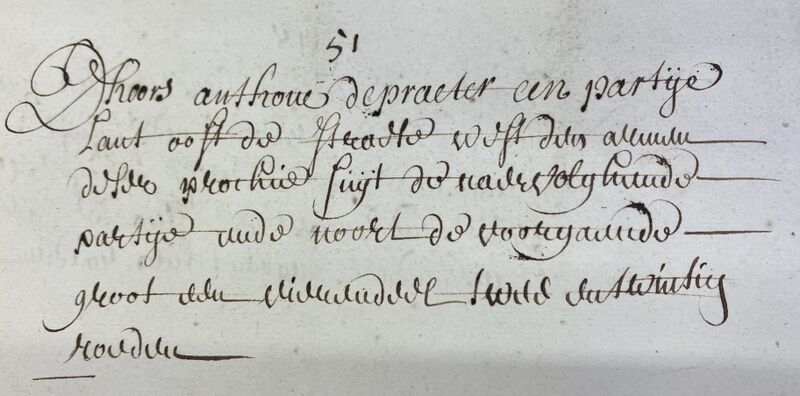 51
Dhoors anthone depraeter een partije
Lant oost de straete west den aermen
deser prochie suyt de naervolghende
partije ende noort de voorgaende
groot een vierendeel twee entwintig
roeden